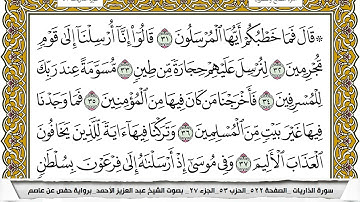 ۞ قَالَ فَمَا خَطْبُكُمْ أَيُّهَا ٱلْمُرْسَلُونَ ٣١ قَالُوٓا۟ إِنَّآ أُرْسِلْنَآ إِلَىٰ قَوْمٍ
مُّجْرِمِينَ ٣٢ لِنُرْسِلَ عَلَيْهِمْ حِجَارَةً مِّن طِينٍ ٣٣ مُّسَوَّمَةً عِندَ رَبِّكَ
لِلْمُسْرِفِينَ ٣٤ فَأَخْرَجْنَا مَن كَانَ فِيهَا مِنَ ٱلْمُؤْمِنِينَ ٣٥ فَمَا وَجَدْنَا
فِيهَا غَيْرَ بَيْتٍ مِّنَ ٱلْمُسْلِمِينَ ٣٦ وَتَرَكْنَا فِيهَآ ءَايَةً لِّلَّذِينَ يَخَافُونَ
ٱلْعَذَابَ ٱلْأَلِيمَ ٣٧ وَفِى مُوسَىٰٓ إِذْ أَرْسَلْنَٰهُ إِلَىٰ فِرْعَوْنَ بِسُلْطَٰنٍ
سورة الذاريات_ الصفحة ٥٢٢_ الحزب ٥٣_ الجزء ٢٧_ بصوت الشيخ عبد العزيز الأحمد_ برواية حفص عن عاصم